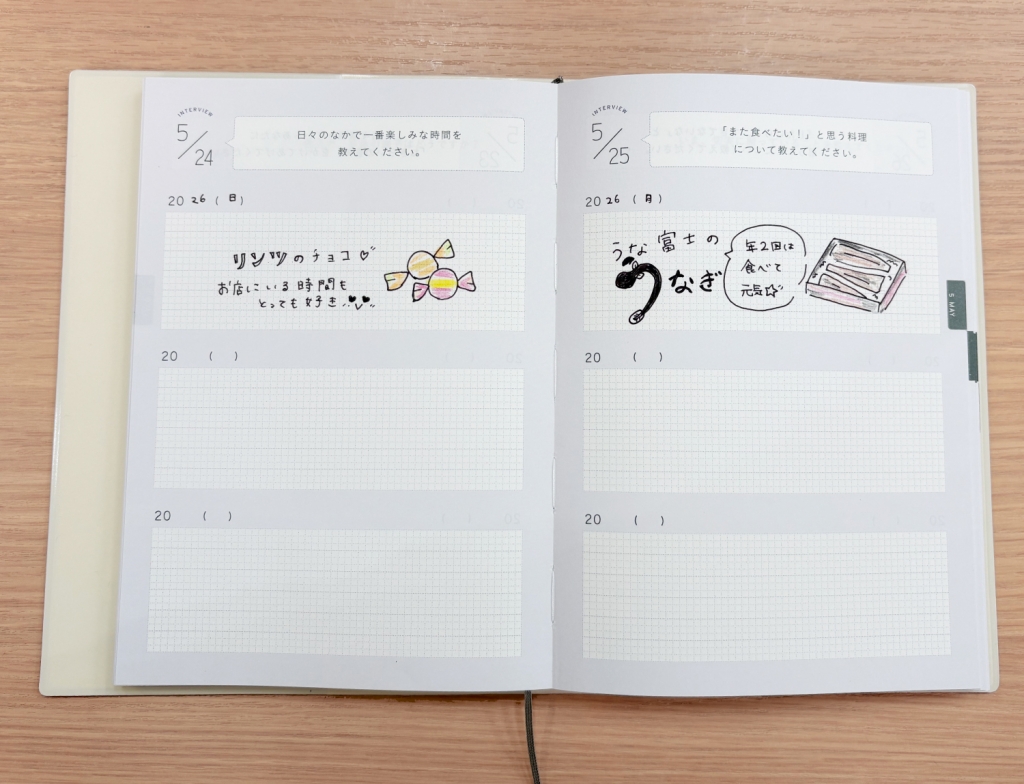 INTERVIEW
5/24
日々のなかで一番楽しみな時間を
教えてください。
2026(日)
リンツのチョコ♡
お店にいる時間も
とっても好き
20 ( )
20 ( )
INTERVIEW
5/25
「また食べたい!」と思う料理
について教えてください。
2026(月)
うな富士の
うなぎ
年2回は
食べて
元気☆
20 ( )
20 ( )
5 MAY